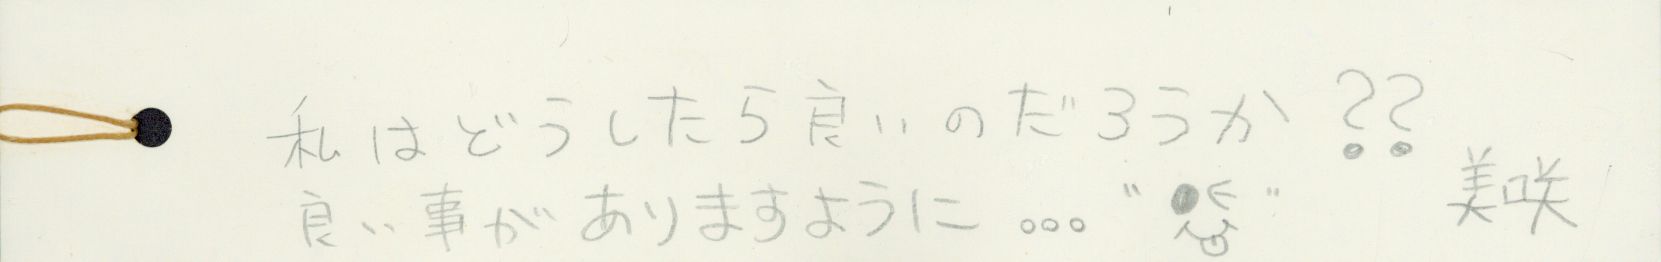 私はどうしたら良いのだろうか??
良い事がありますように… " "
美咲